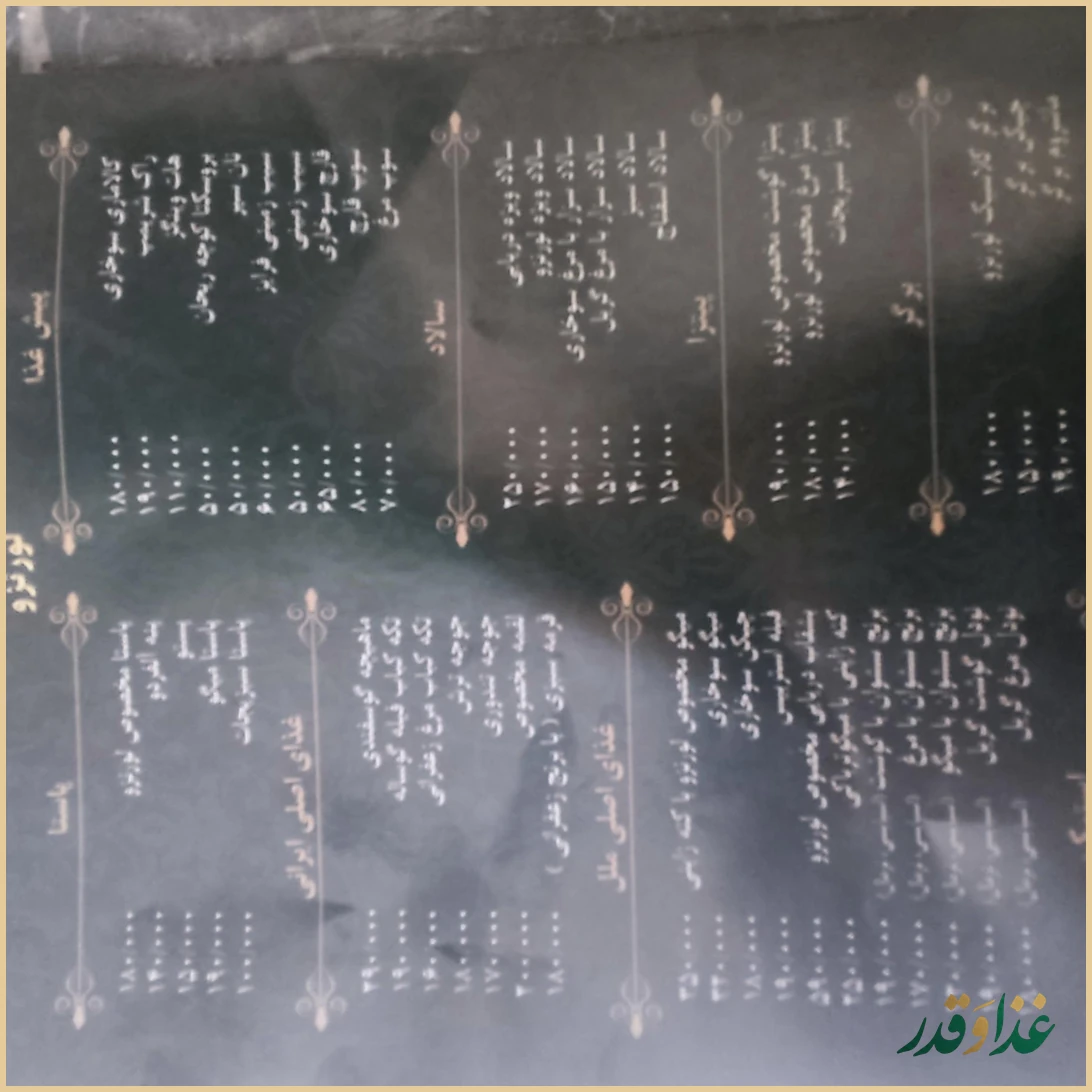 لورنزو
پیش غذا
کالاماری سوخاری ۱۸۰/۰۰۰
راک شریمپ ۱۹۰/۰۰۰
هات وینگز ۱۱۰/۰۰۰
بروسکتا گوجه ریحان ۵۰/۰۰۰
نان سیر ۵۰/۰۰۰
سیب زمینی فرایز ۶۰/۰۰۰
سیب زمینی ۵۰/۰۰۰
قارچ سوخاری ۶۵/۰۰۰
سوپ قارچ ۸۰/۰۰۰
سوپ مرغ ۷۰/۰۰۰
سالاد
سالاد ویژه دریایی ۲۵۰/۰۰۰
سالاد ویژه لورنزو ۱۷۰/۰۰۰
سالاد سزار با مرغ سوخاری ۱۶۰/۰۰۰
سالاد سزار با مرغ گریل ۱۵۰/۰۰۰
سالاد سبز ۱۴۰/۰۰۰
سالاد اسفناج ۱۵۰/۰۰۰
پیتزا
پیتزا گوشت مخصوص لورنزو ۱۹۰/۰۰۰
پیتزا مرغ مخصوص لورنزو ۱۸۰/۰۰۰
پیتزا سبزیجات ۱۴۰/۰۰۰
برگر
برگر کلاسیک لورنزو ۱۸۰/۰۰۰
چیکن برگر ۱۵۰/۰۰۰
ماشروم برگر ۱۹۰/۰۰۰
پاستا
پاستا مخصوص لورنزو ۱۸۰/۰۰۰
پنه آلفردو ۱۴۰/۰۰۰
پستو ۱۵۰/۰۰۰
پاستا میگو ۱۹۰/۰۰۰
پاستا سبزیجات ۱۰۰/۰۰۰
غذای اصلی ایرانی
ماهیچه گوسفندی ۲۹۰/۰۰۰
تکه کباب فیله گوساله ۱۹۰/۰۰۰
تکه کباب مرغ زعفرانی ۱۶۰/۰۰۰
جوجه ترش ۱۸۰/۰۰۰
جوجه تندوری ۱۷۰/۰۰۰
لقمه مخصوص ۲۰۰/۰۰۰
قرمه سبزی ( با برنج زعفرانی ) ۱۸۰/۰۰۰
غذای اصلی ملل
میگو مخصوص لورنزو با کته زاپنی ۲۵۰/۰۰۰
میگو سوخاری ۲۲۰/۰۰۰
چیکن سوخاری ۱۸۰/۰۰۰
فیله استریپس ۱۹۰/۰۰۰
بشقاب دریای مخصوص لورنزو ۵۹۰/۰۰۰
کته ژاپنی با میگو کوباکی ۲۵۰/۰۰۰
برنج سیسوان با گوشت ۱۹۰/۰۰۰
برنج سیسوان با مرغ ۱۷۰/۰۰۰
برنج سیسوان با میگو
نودل گوشت گریل
نودل مرغ گریل
غذا و قدر